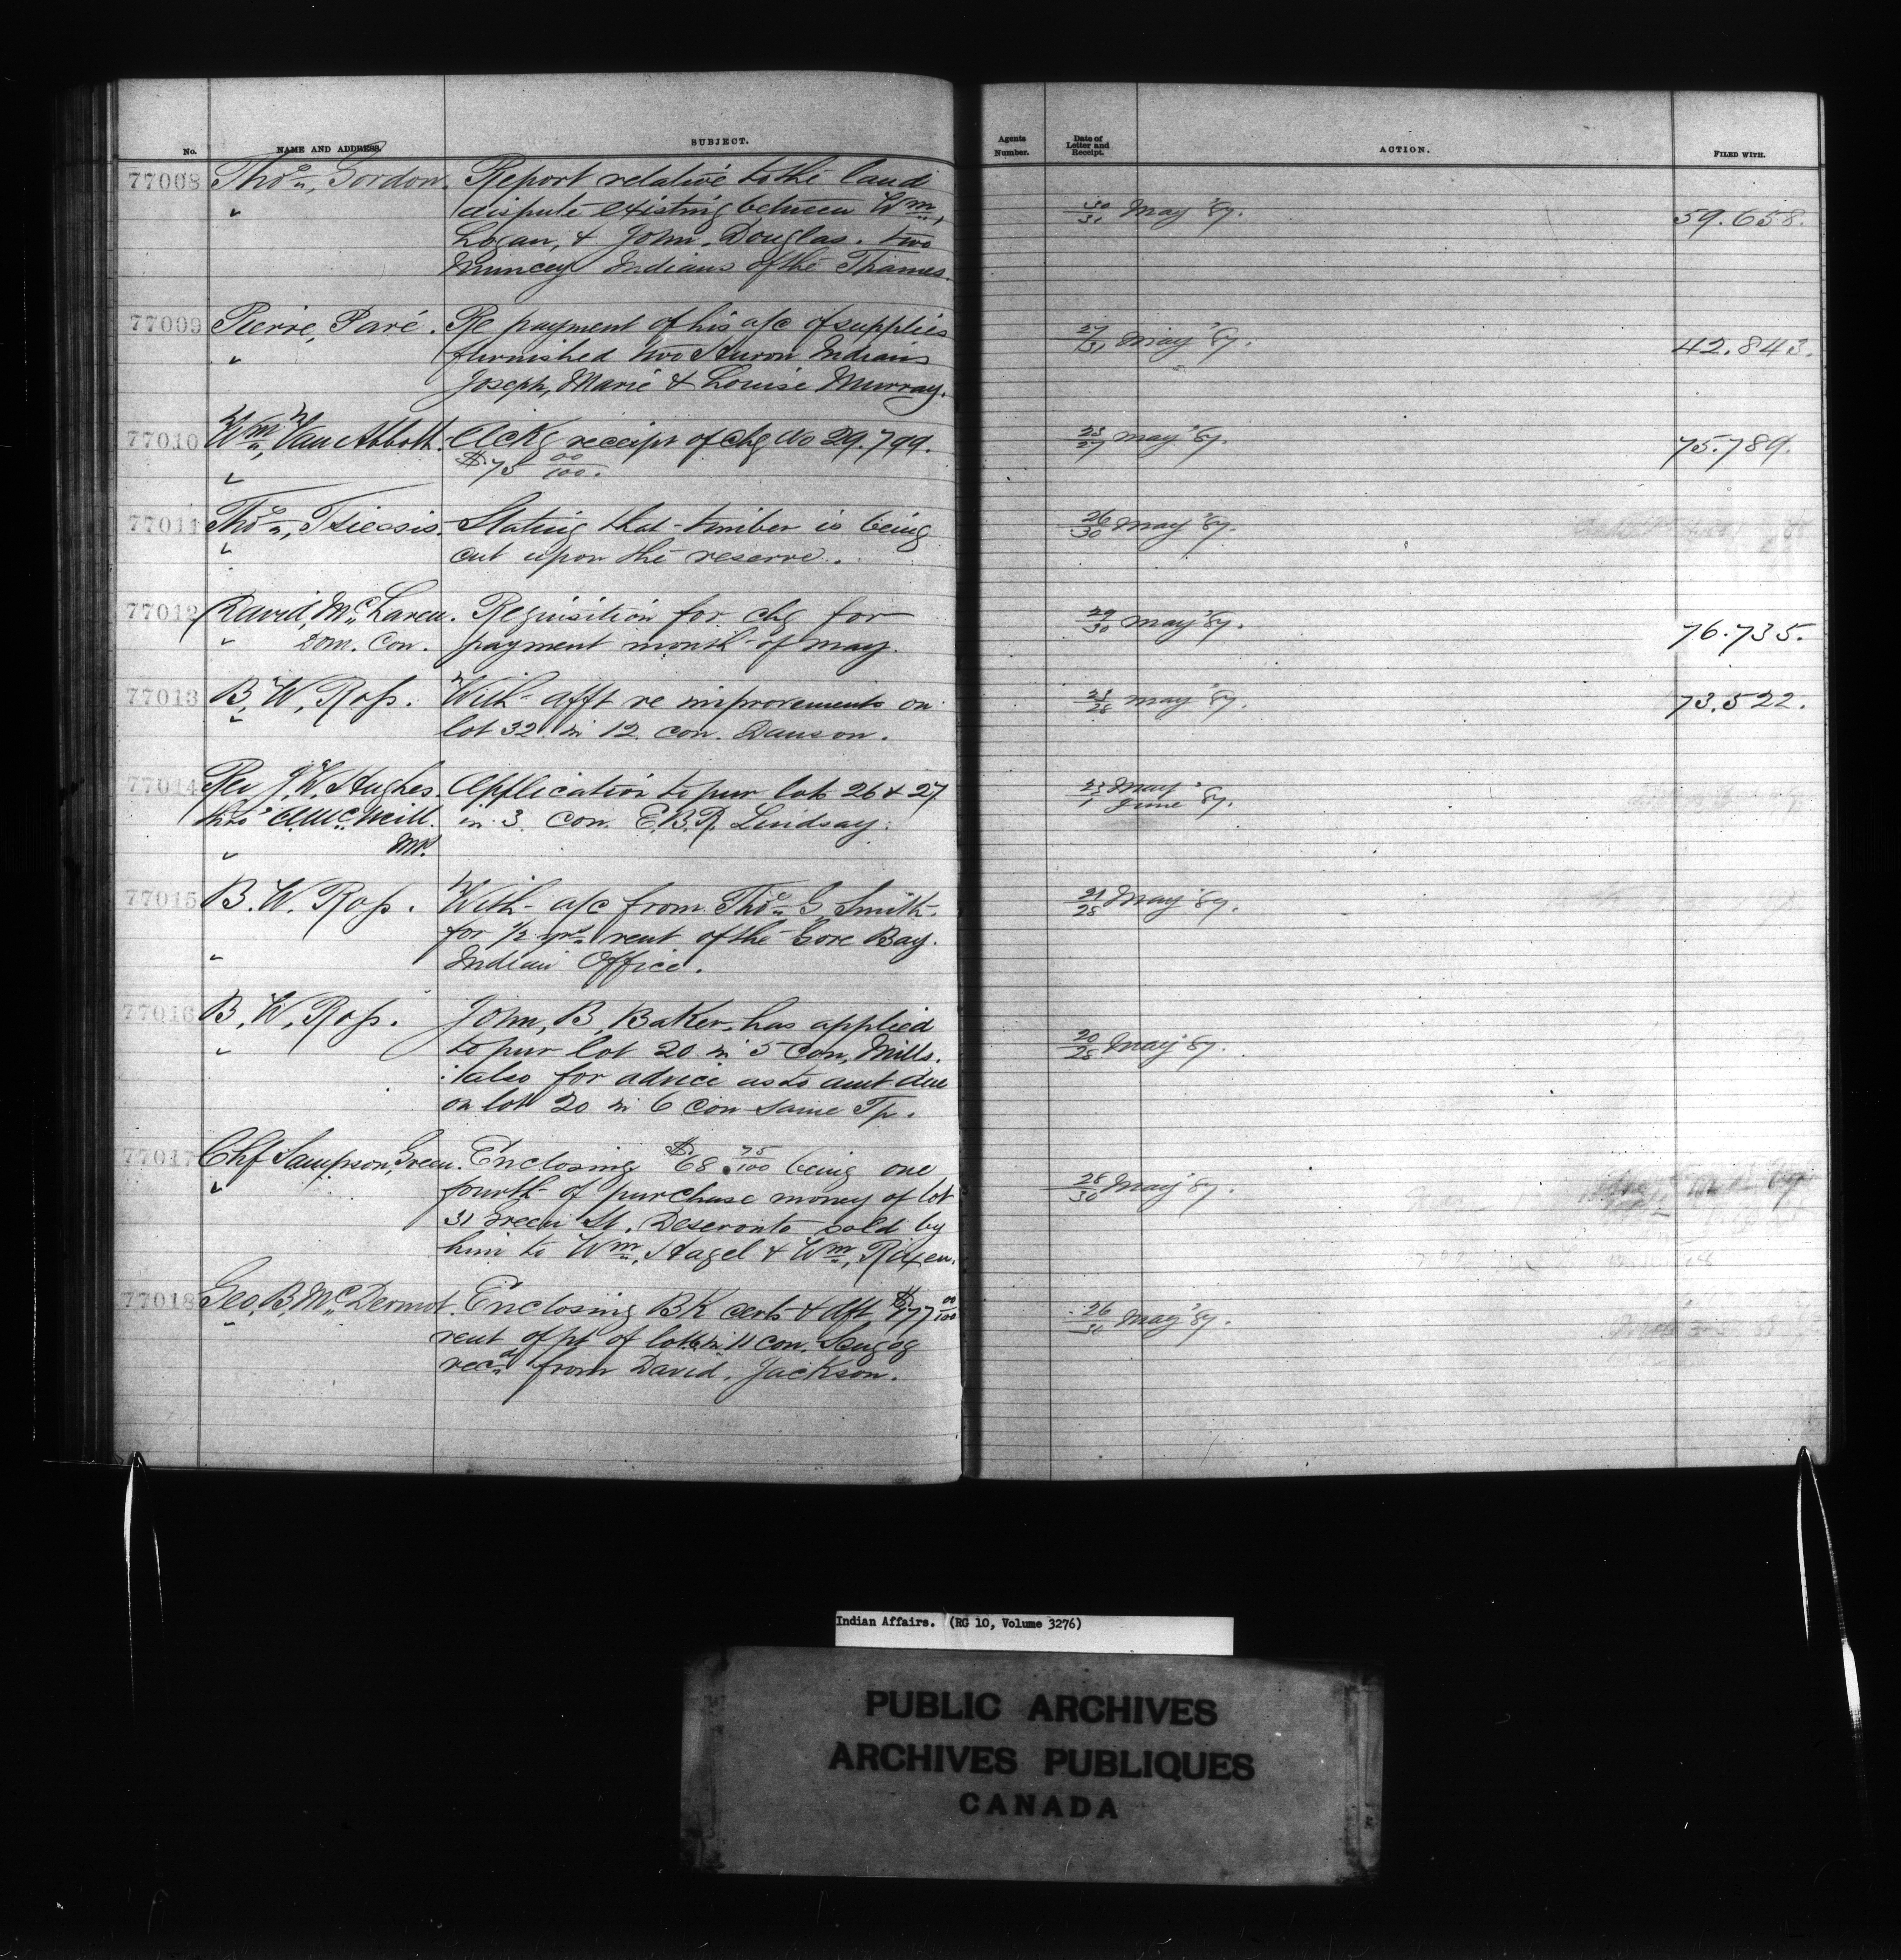 No. NAME AND ADDRESS. SUBJECT. Agents Number. Date of Letter and Receipt. ACTION. FILED WITH.
77008 Thos, Gordon. Report relative to the land
" dispute existing between Wm, 30/31 May '87. 59.658.
Logan, & John, Douglas. two
Muncey Indians of the Thames.
77009 Pierre, Paré. Re payment of his a/c of supplies 27/31 May '87. 42.843.
" furnished two Huron Indians
Joseph, Marie & Louise Murray.
77010 Wm, Van Abbott. Ackg receipt of chq No 29.799. 23/27 May '87. 75.789.
" $75 00/100.
77011 Thos, Tsiessis. Stating that timber is being 26/30 May '87.
" cut upon the reserve.
77012 David, McLaren. Requisition for chq for 29/30 May '87.
" Dom. Con. payment month of May. 76.735.
77013 B, W, Ross. With afft re improvements on 23/28 May '87. 73.522.
" lot 32 in 12 con. Dawson.
77014 Rev J. W. Hughes. Application to pur lots 26 & 27 23 May
thro' A. McNeill. in 3 Con. E.B.R. Lindsay. 1 June '87.
" MP.
77015 B. W. Ross. With a/c from Thos G, Smith 21/28 May '87.
for 1/2 yrs rent of the Gore Bay.
" Indian Office.
77016 B, W, Ross. John, B, Baker, has applied
" to pur lot 20 in 5 Con, Mills. 20/28 May '87.
: also for advice as to amt due
on lot 20 in 6 con same Tp.
77017 Chf Sampson, Green. Enclosing $68.75/100 being one
" fourth of purchase money of lot 28/30 May '87.
31 Green St. Deseronto sold by
him to Wm, Hagel & Wm,
77018 Geo, B, McDermot. Enclosing BK cert & dft, $177 00/100
" rent of pt of lot in 11 con. Scugog 26/30 May '87.
recd from David, Jackson.
Indian Affairs. (RG 10, Volume 3276)
PUBLIC ARCHIVES
ARCHIVES PUBLIQUES
CANADA